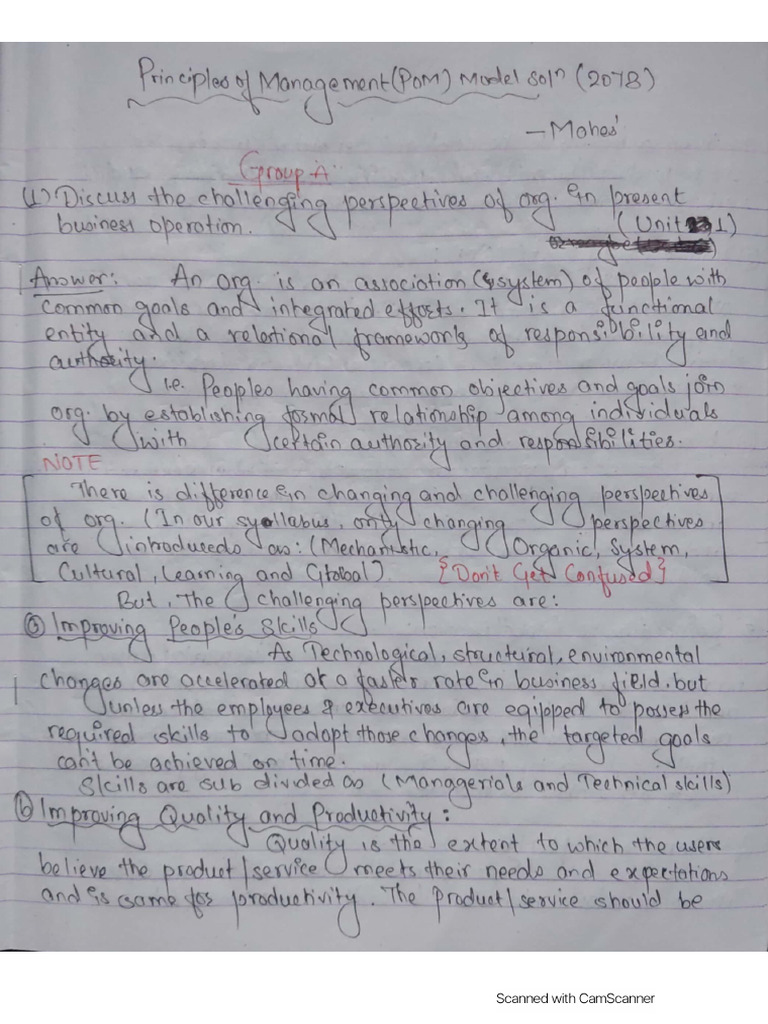 Principles of Management (POM) Model Solⁿ (2078)
- Mahes'
Group-A
(1) Discuss the challenging perspectives of org. in present
business operation. (Unit 1)
Answer: An org. is an association (system) of people with
common goals and integrated efforts. It is a functional
entity and a relational frameworks of responsibility and
authority.
i.e. Peoples having common objectives and goals join
org. by establishing formal relationship among individuals
with certain authority and responsibilities.
NOTE
There is difference in changing and challenging perspectives
of org. (In our syllabus, only changing perspectives
are introduceds as: (Mechanistic, Organic, System,
Cultural, Learning and Global) {Don't Get Confused}
But, The challenging perspectives are:
(a) Improving People's Skills
As Technological, structural, environmental
changes are accelerated at a faster rate in business field, but
unless the employees & executives are eqipped to possess the
required skills to adapt those changes, the targeted goals
can't be achieved on time.
Skills are sub divided as (Manggerials and Technical skills)
(b) Improving Quality and Productivity:
Quality is the extent to which the users
believe the product/service meets their needs and expectations
and is same for productivity. The Product/service should be
Scanned with CamScanner